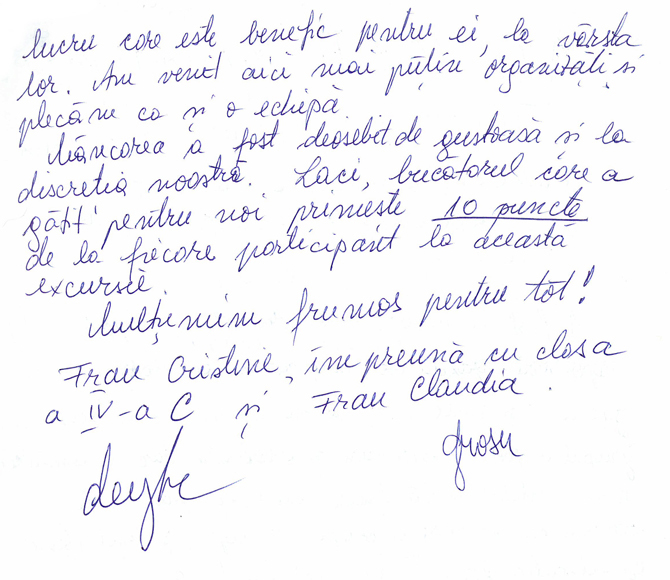 lucru care este benefic pentru ei, la vârsta
lor. Am venit aici mai puțin organizați și
plecăm ca și o echipă.
Mâncarea a fost deosebit de gustoasă și la
discreția noastră. Laci, bucătarul care a
gătit pentru noi primește 10 puncte
de la fiecare participant la această
excursie.
Mulțumim frumos pentru tot!
Frau Cristine, împreună cu clasa
a IV-a C și Frau Claudia.